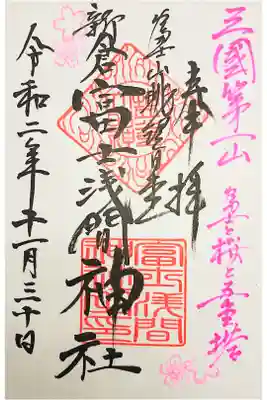 三國第一山
富士と桜と五重塔
奉拝
富士山
新倉富士浅間神社
令和二年十一月三十日
富士浅間